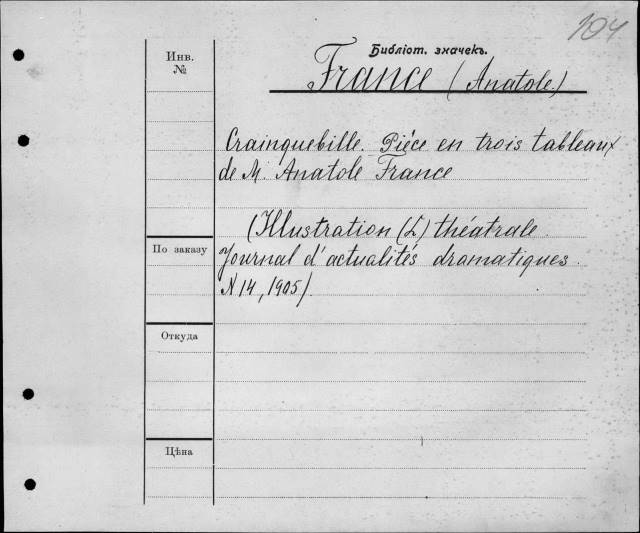 104
Библіот. значекъ.
Инв.
№
France (Anatole.)
Crainquebille. Piéce en trois tableaux
de M. Anatole France
(Illustration (L) théatrale.
По заказу
Journal d'actualités dramatiques.
N 14, 1905).
Откуда
Цѣна